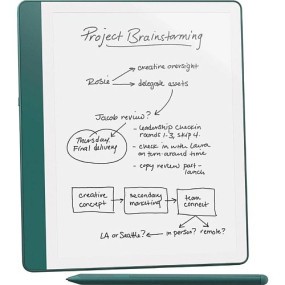 Project Brainstorming
creative oversight
Rosie
delegate assets
Jacob review?
- leadership check in
rounds 1-3, skip 4.
Thursday,
Final delivery
- check in with Laura
on turn-around time
- copy review post-
launch
creative
concept
secondary
marketing
team
connect
LA or Seattle?
in person?
remote?